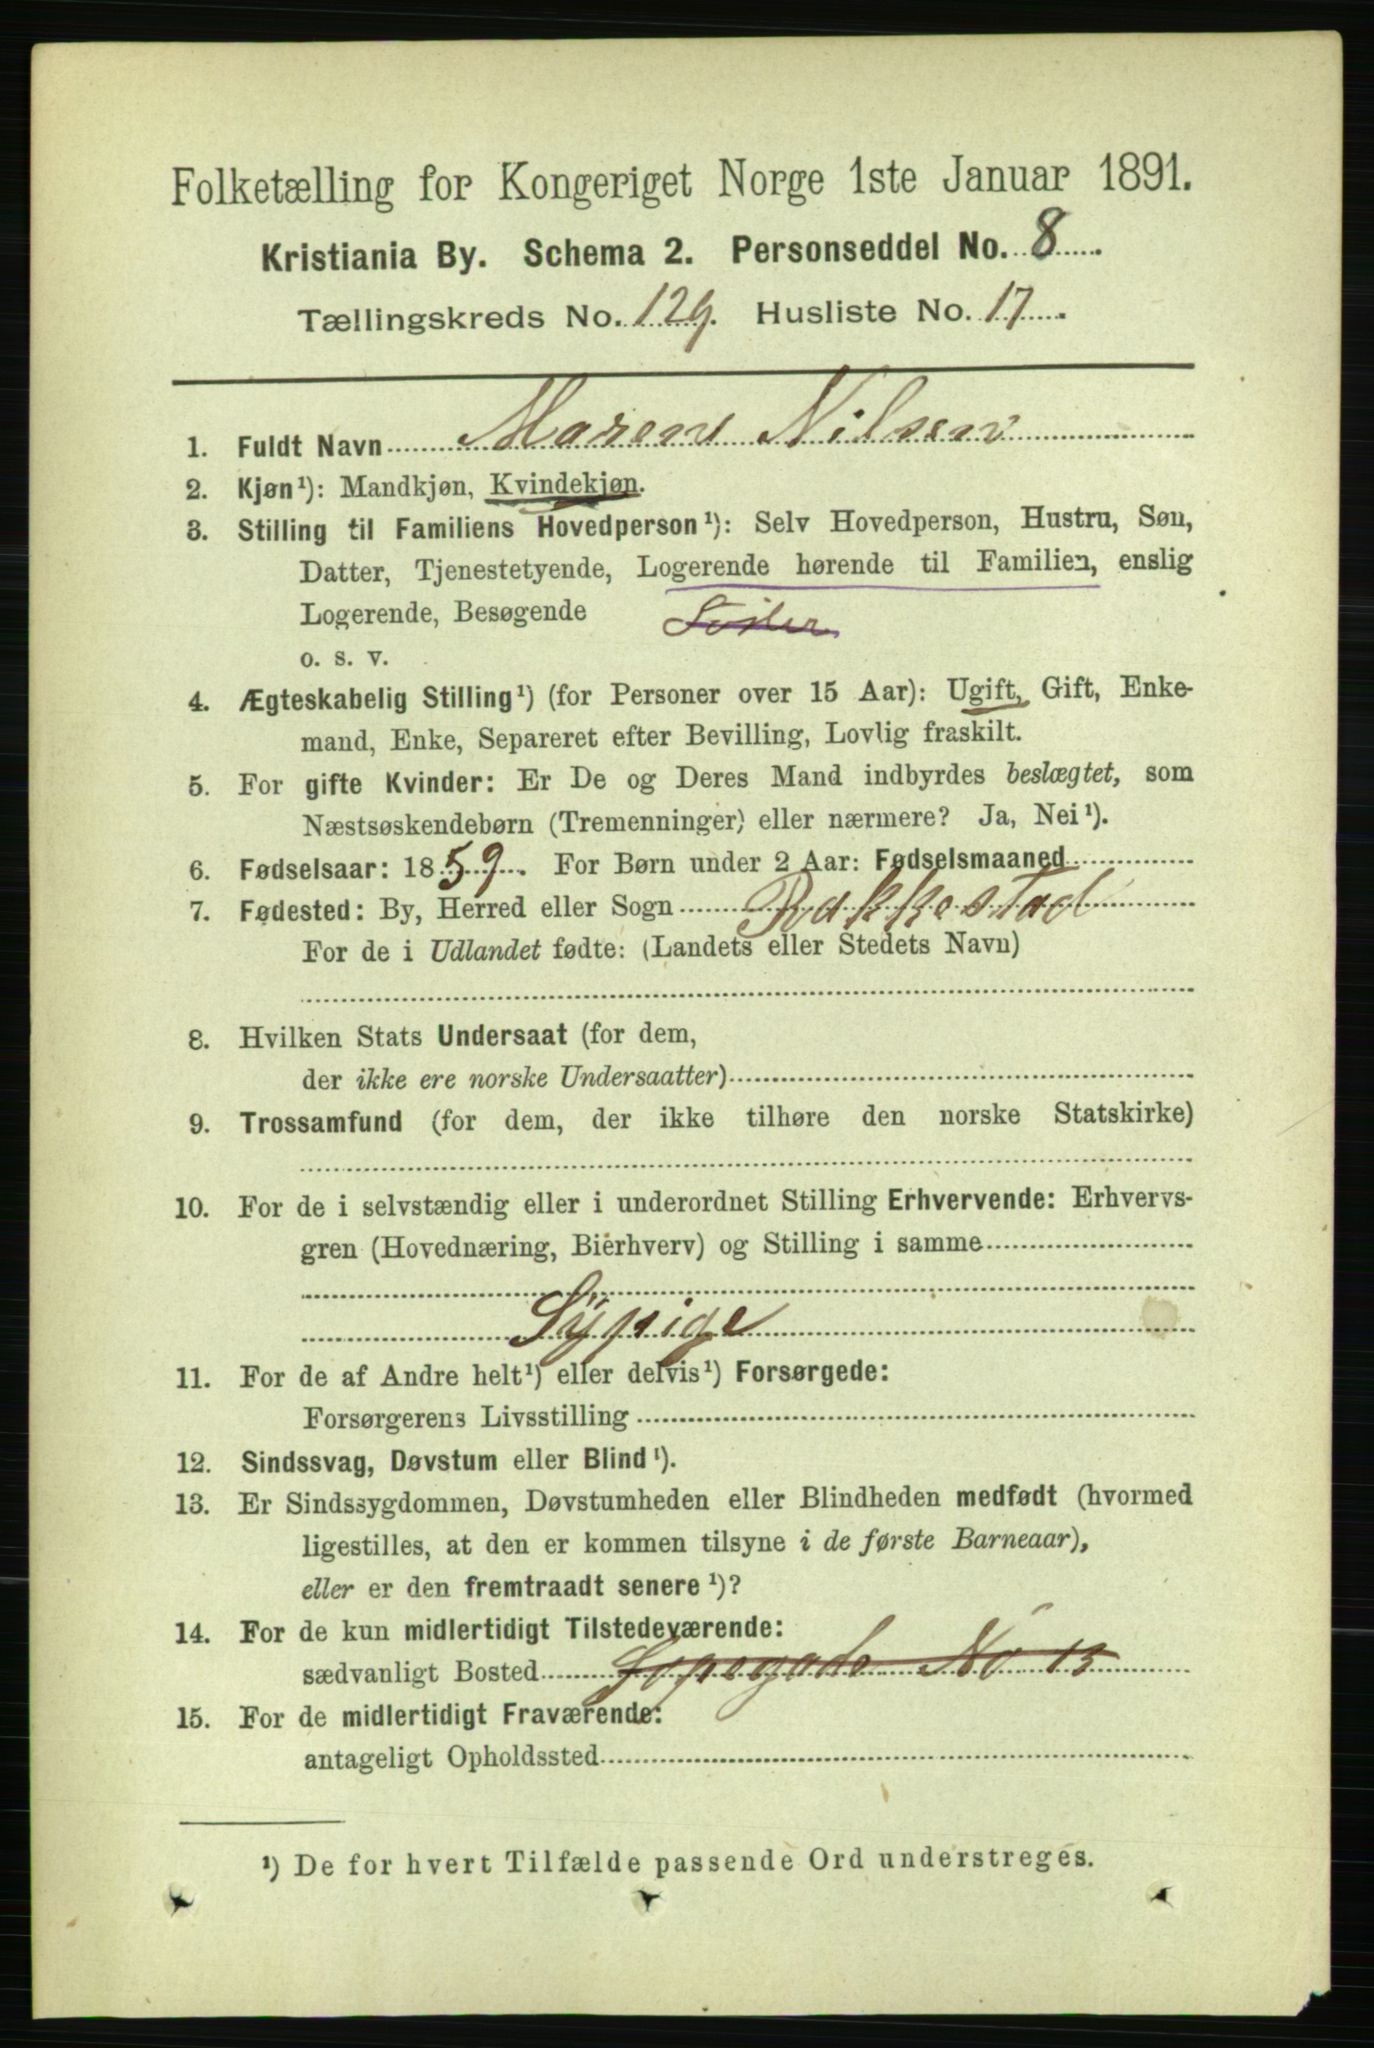 Folketælling for Kongeriget Norge 1ste Januar 1891.
Kristiania By. Schema 2. Personseddel No. 8
Tællingskreds No. 129. Husliste No. 17.
1. Fuldt Navn Maren Nilsen
2. Kjøn¹): Mandkjøn, Kvindekjøn.
3. Stilling til Familiens Hovedperson¹): Selv Hovedperson, Hustru, Søn,
Datter, Tjenestetyende, Logerende hørende til Familien, enslig
Logerende, Besøgende
o. s. v.
4. Ægteskabelig Stilling¹) (for Personer over 15 Aar): Ugift, Gift, Enke-
mand, Enke, Separeret efter Bevilling, Lovlig fraskilt.
5. For gifte Kvinder: Er De og Deres Mand indbyrdes beslægtet, som
Næstsøskendebørn (Tremenninger) eller nærmere? Ja, Nei¹).
6. Fødselsaar: 1859. For Børn under 2 Aar: Fødselsmaaned
7. Fødested: By, Herred eller Sogn Rakkestad
For de i Udlandet fødte: (Landets eller Stedets Navn)
8. Hvilken Stats Undersaat (for dem,
der ikke ere norske Undersaatter)
9. Trossamfund (for dem, der ikke tilhøre den norske Statskirke)
10. For de i selvstændig eller i underordnet Stilling Erhvervende: Erhvervs-
gren (Hovednæring, Bierhverv) og Stilling i samme
Sÿpige
11. For de af Andre helt¹) eller delvis¹) Forsørgede:
Forsørgerens Livsstilling
12. Sindssvag, Døvstum eller Blind¹).
13. Er Sindssygdommen, Døvstumheden eller Blindheden medfødt (hvormed
ligestilles, at den er kommen tilsyne i de første Barneaar),
eller er den fremtraadt senere¹)?
14. For de kun midlertidigt Tilstedeværende:
sædvanligt Bosted No 13
15. For de midlertidigt Fraværende:
antageligt Opholdssted
¹) De for hvert Tilfælde passende Ord understreges.